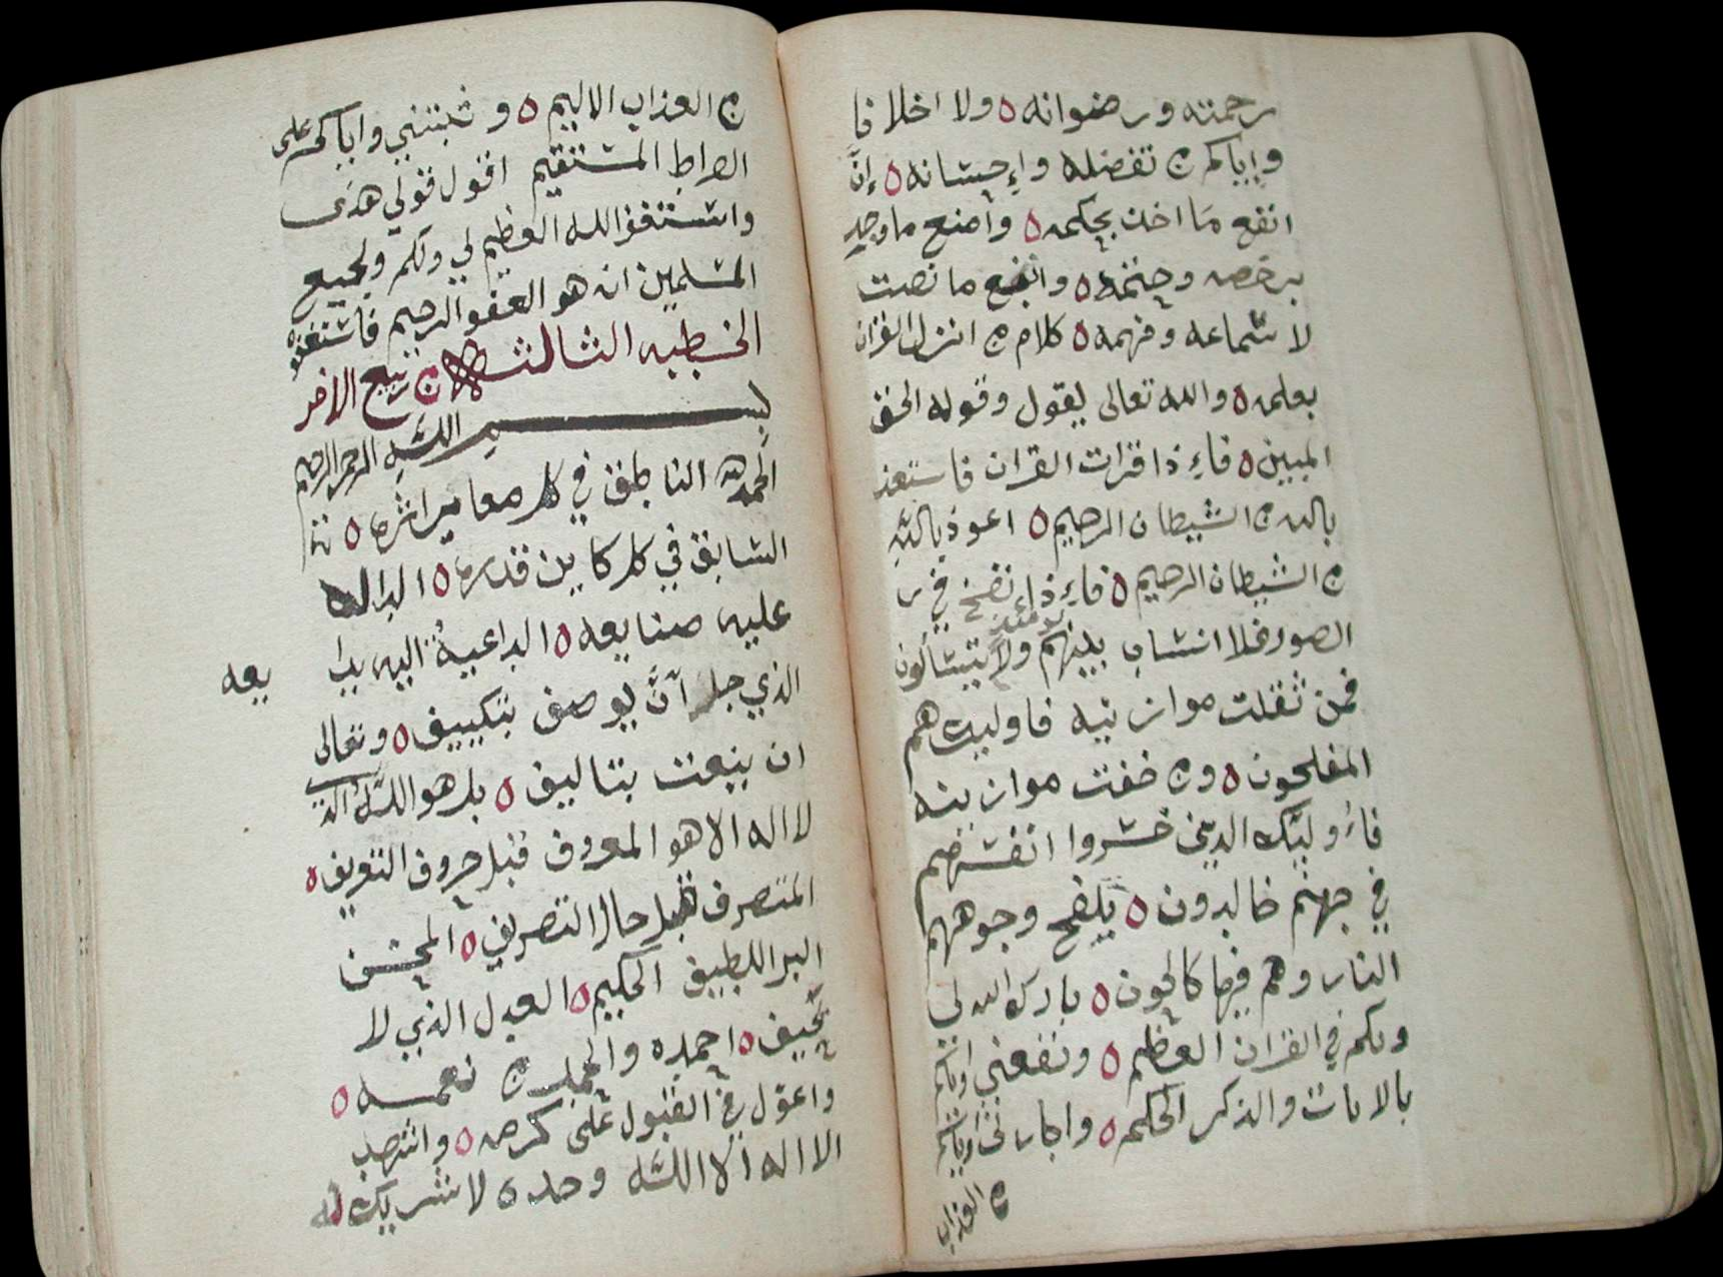 رحمته ورضوانه ٥ ولا اخلا فا
واياكم من تفضله وإحسانه ٥ إنّ
انفع ما اخذ بحكمه ٥ وامنع ما وجد
برخصه وحتمه ٥ وانفع ما نصت
لاسماعه وفهمه ٥ كلام من انزل القران
بعلمه ٥ والله تعالى يقول وقوله الحق
المبين ٥ فاءِذا قرات القران فاستعذ
بالله من الشيطان الرجيم ٥ اعوذ بالله
من الشيطان الرجيم ٥ فاءِذا نفخ في
الصور فلا انساب بينهم يومئذ ولا يتسالون
فمن ثقلت موازينه فاوليك هم
المفلحون ٥ ومن خفت موازينه
فاءُوليك الذين خسروا انفسهم
في جهنم خالدون ٥ تلفح وجوههم
النار وهم فيها كالحون ٥ بارك الله لي
ولكم في القران العظيم ٥ ونفعني واياكم
بالايات والذكر الحكيم ٥ واجارني واياكم
من العذاب
من العذاب الاليم ٥ وثبتني واياكم على
الصراط المستقيم اقول قولي هذى
واستغفر الله العظيم لي ولكم ولجميع
المسلمين انه هو الغفو الرحيم فاستغفروه
الخطبه الثالثه من ربيع الاخر
بسم الله الرحمن الرحيم
الحمد لله الناطق في كل معا اثره ٥
السابق في كل كاين قدره ٥ الداله
عليه صنايعه ٥ الداعية اليه بدا يعه
الذي جل أنّ يوصف بتكييف ٥ وتعالى
ان ينعت بتاليف ٥ بل هو الله الذي
لا اله الا هو المعروف قبل حروف التعريف ٥
المتصرف قبل حال التصريف ٥ المحسن
البر اللطيف الحكيم ٥ العدل الذي لا
يحيف ٥ احمده والحمد من نعمه ٥
واعوّل في القبول على كرمه ٥ واشهد
الا اله الا الله وحده لا شريك له